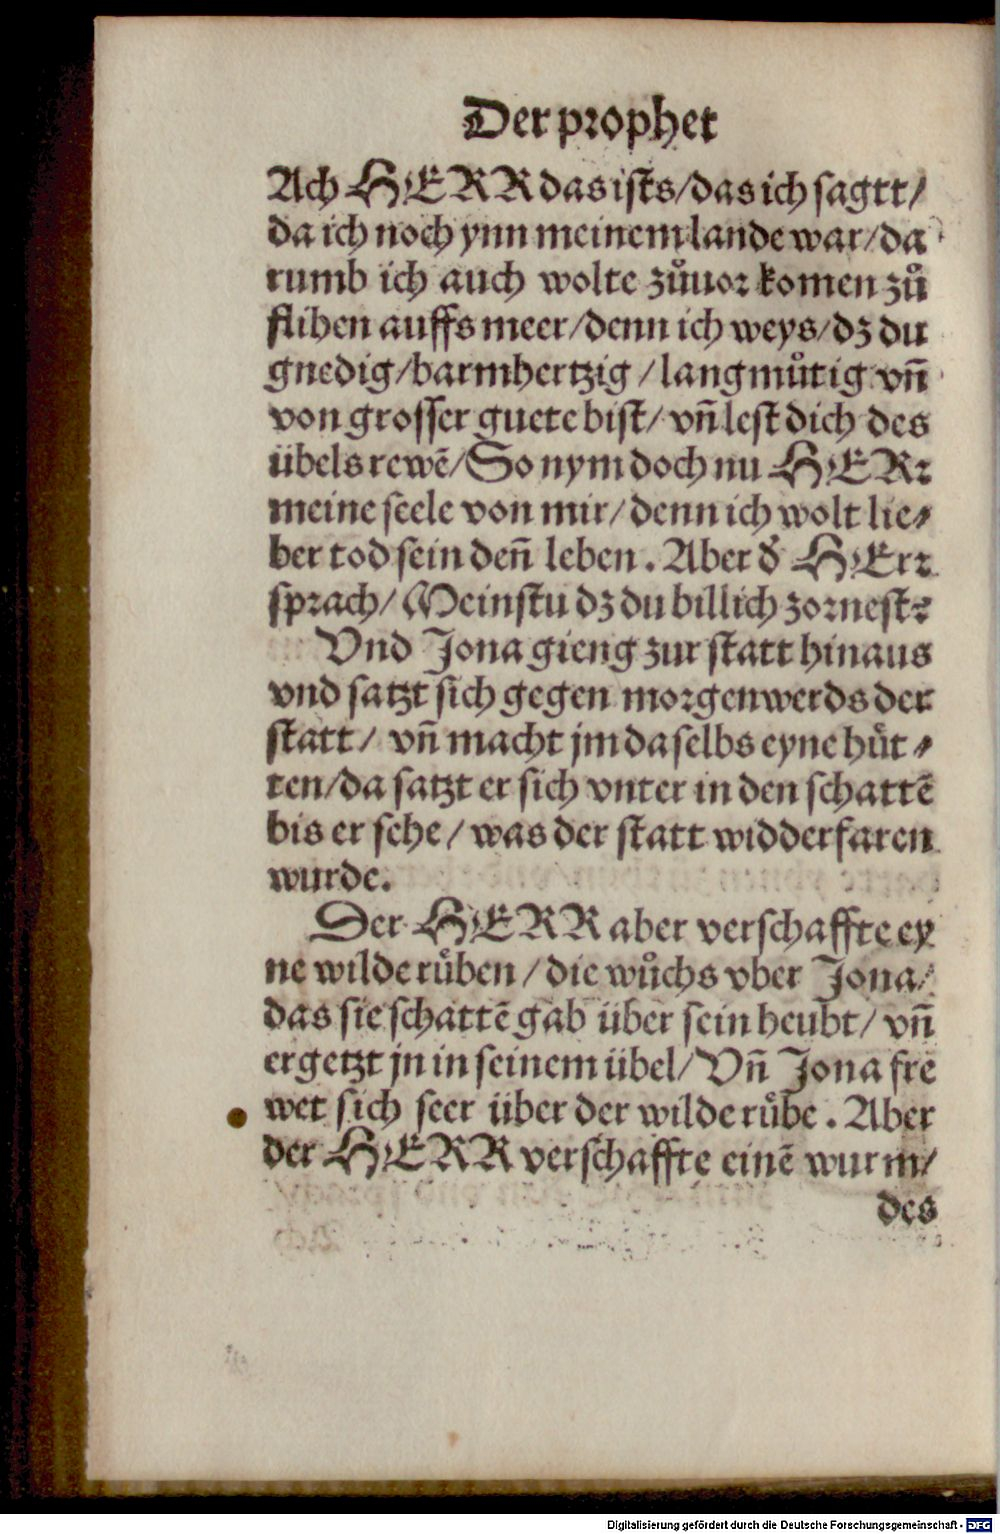 Der prophet
Ach HERR das ists/das ich sagtt/
da ich noch ynn meinem lande war/da
rumb ich auch wolte zůuor komen zů
flihen auffs meer/denn ich weys/dz du
gnedig/barmhertzig/langmůtig vn̄
von grosser guete bist/ vn̄ lest dich des
übels rewē/So nym doch nu HERr
meine seele von mir/denn ich wolt lie⸗
ber tod sein den̄ leben. Aber d̕ HErr
sprach/Meinstu dz du billich zornest?
Vnd Jona gieng zur statt hinaus
vnd satzt sich gegen morgenwerds der
statt/ vn̄ macht jm daselbs eyne hůt⸗
ten/da satzt er sich vnter in den schattē
bis er sehe/was der statt widderfaren
wurde.
Der HERR aber verschaffte ey
ne wilde růben/die wůchs vber Jona/
das sie schattē gab über sein heubt/ vn̄
ergetzt jn in seinem übel/Vn̄ Jona fre
wet sich seer über der wilde růbe. Aber
der HERR verschaffte einē wurm/
des
Digitalisierung gefördert durch die Deutsche Forschungsgemeinschaft - DFG